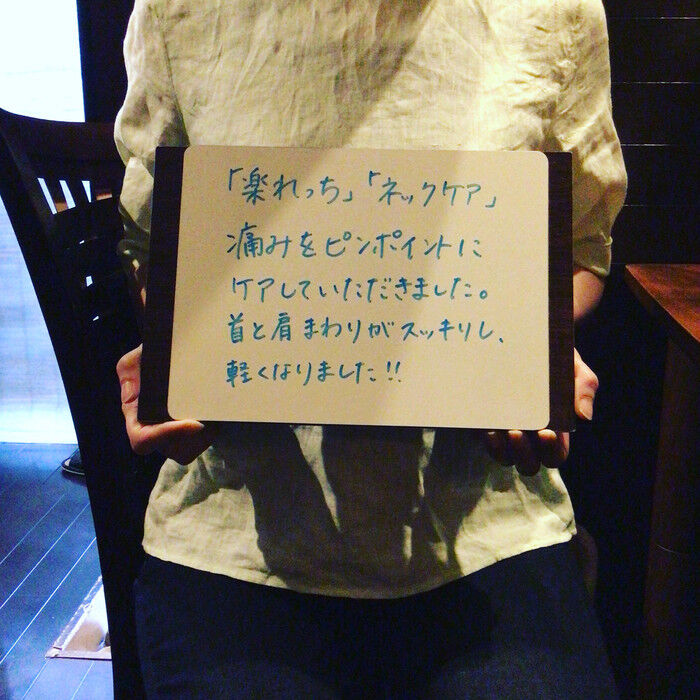 「楽れっち」「ネックケア」
痛みをピンポイントに
ケアしていただきました。
首と肩まわりがスッキリし、
軽くなりました!!